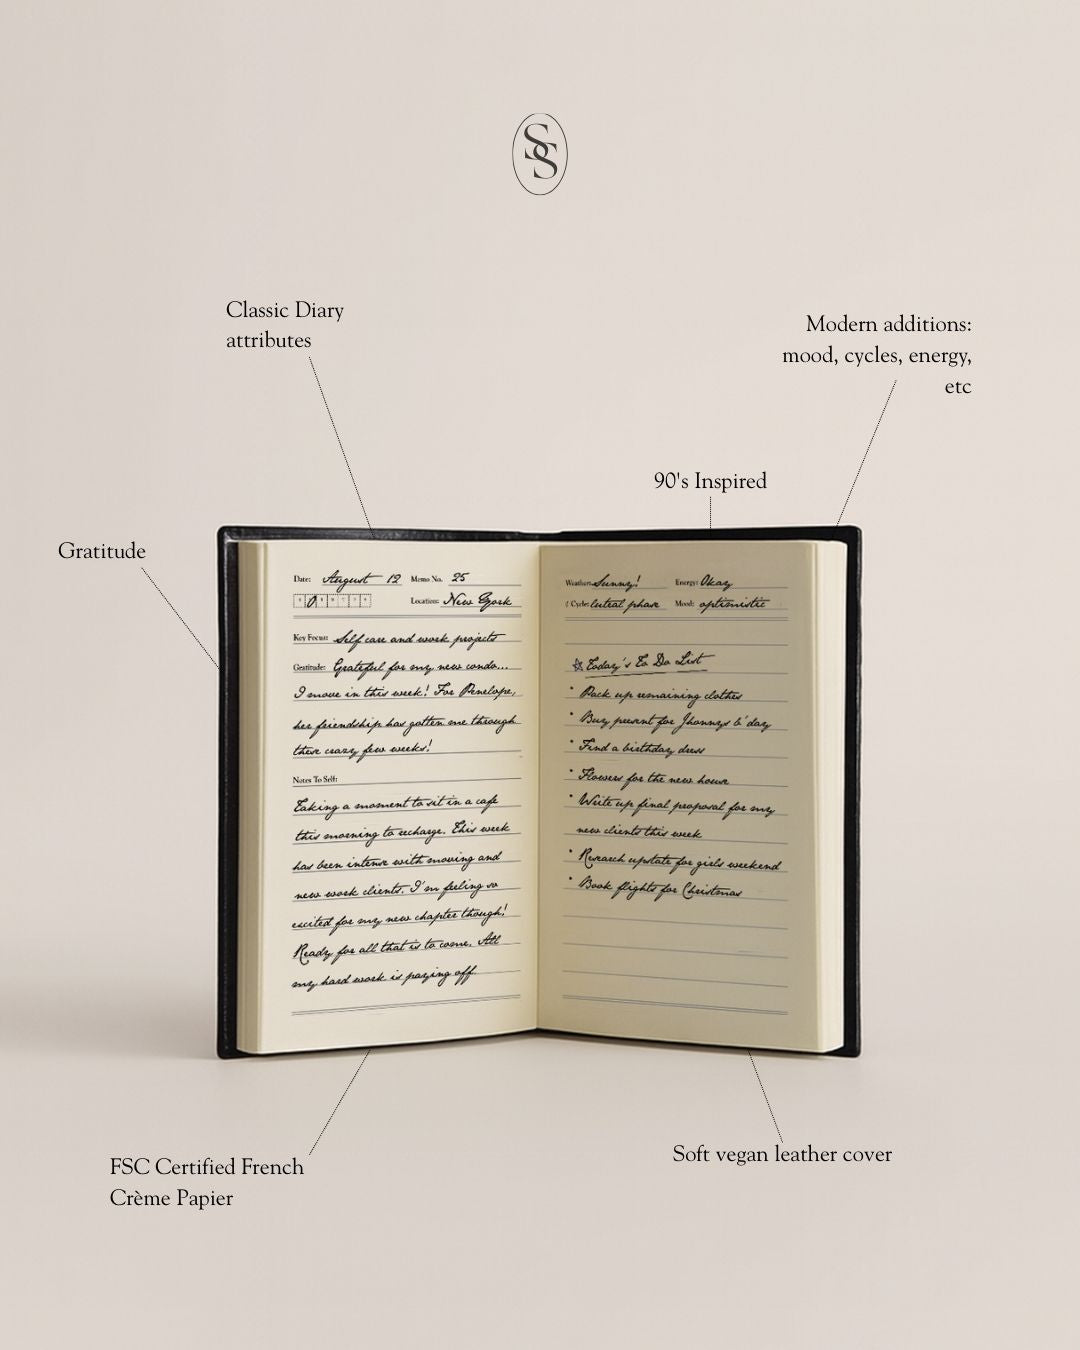 SS
Classic Diary
attributes
Modern additions:
mood, cycles, energy,
etc
90's Inspired
Gratitude
Date: August 12 Memo No. 25
Location: New York
Key Focus: Self care and work projects
Gratitude: Grateful for my new condo...
I move in this week! For Penelope,
her friendship has gotten me through
these crazy few weeks!
Notes To Self:
Taking a moment to sit in a cafe
this morning to recharge. This week
has been intense with moving and
new work clients. I'm feeling so
excited for my new chapter though!
Ready for all that is to come. All
my hard work is paying off.
Weather: Sunny! Energy: Okay
Cycle: luteal phase Mood: optimistic
Today's To Do List
• Pack up remaining clothes
• Buy present for Jhonnys b'day
• Find a birthday dress
• Flowers for the new house
• Write up final proposal for my
new clients this week
• Research upstate for girls weekend
• Book flights for Christmas
FSC Certified French
Crème Papier
Soft vegan leather cover